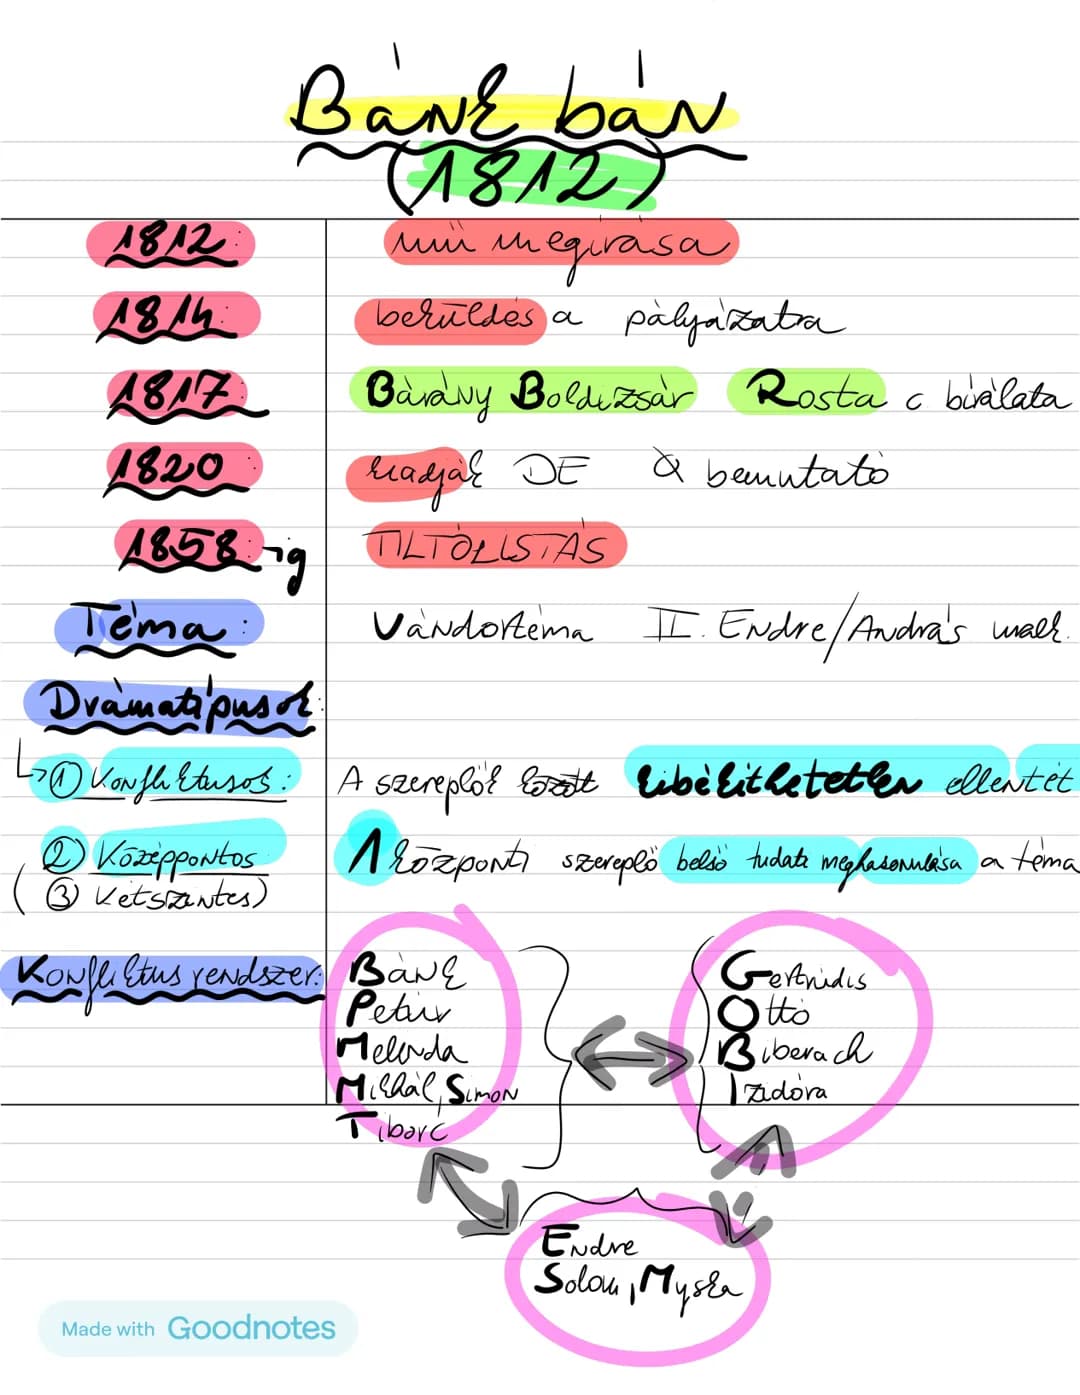 Bánk bán
(1812)
1812: mű megírása
1814: beküldés a pályázatra
1817: Bárány Boldizsár Rosta c bírálata
1820 kiadják DE bemutató
1858-ig TILTÓLISTÁS
Téma: Vándortéma II. Endre/András
Drámatípusok:
① Konfliktusos: A szereplők között kibékíthetetlen ellentét
② Középpontos 1 központi szereplő belső tudati meghasonulása a téma
(③ Kétszintes)
Konfliktus rendszer:
Bánk
Petur
Melinda
Mikhál, Simon
Tiborc
Gertrúdis
Ottó
Biberach
Izidóra
Endre
Solom, Myska
Made with Goodnotes